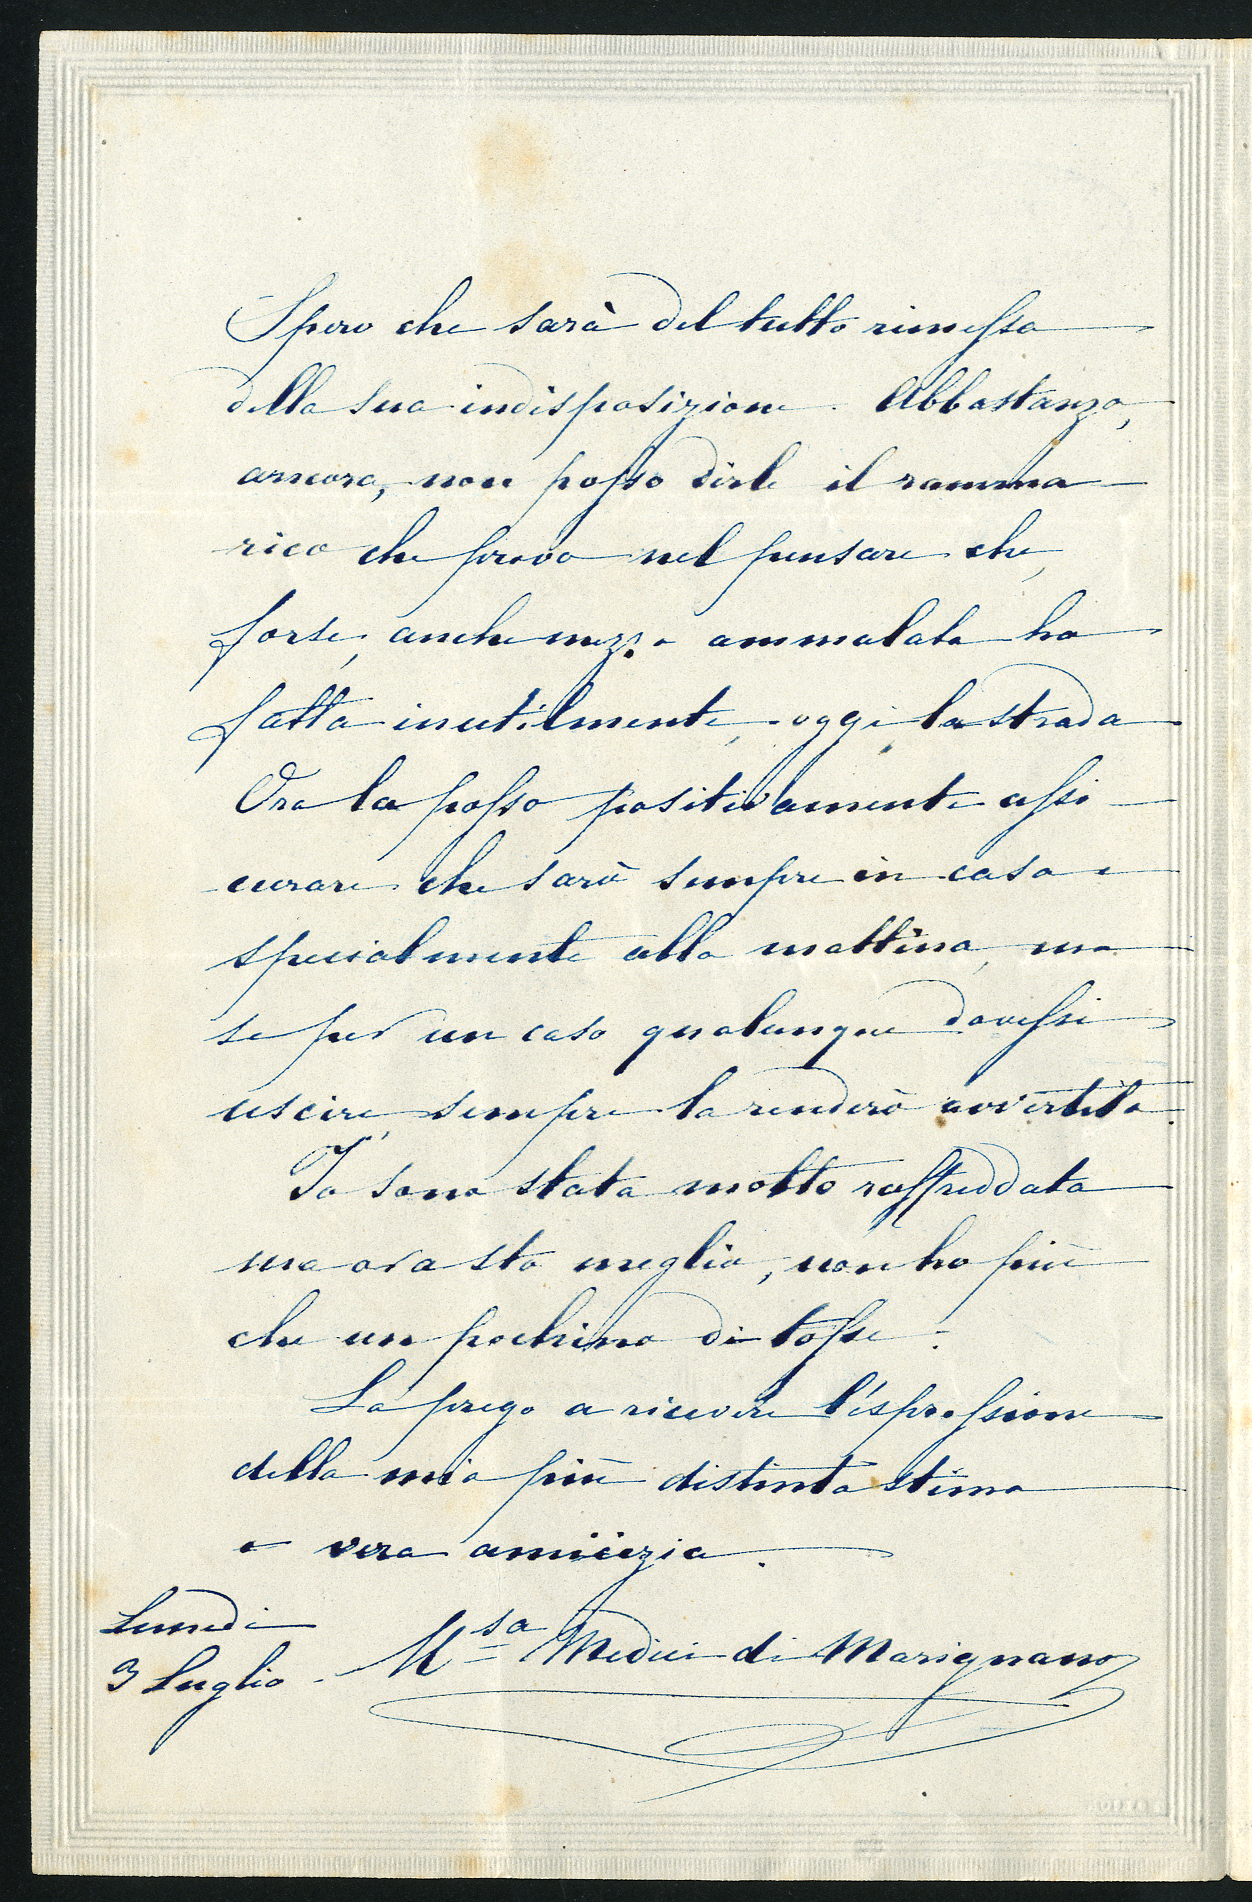 Spero che sarà del tutto rimessa
della sua indisposizione. Abbastanza,
ancora, non posso dirle il ramma-
rico che provo nel pensare che,
forse, anche mezzo ammalata ha
fatta inutilmente, oggi, la strada.
Ora la posso positivamente assi-
curare che sarò sempre in casa e
specialmente alla mattina, ma
se per un caso qualunque dovessi
uscire, sempre la renderò avvertita.
Io sono stata molto raffreddata
ma ora sto meglio, non ho più
che un pochino di tosse.
La prego a ricevere l'espressione
della mia più distinta stima
e vera amicizia.
Lunedi
3 Luglio.
M.sa Medici di Marignano